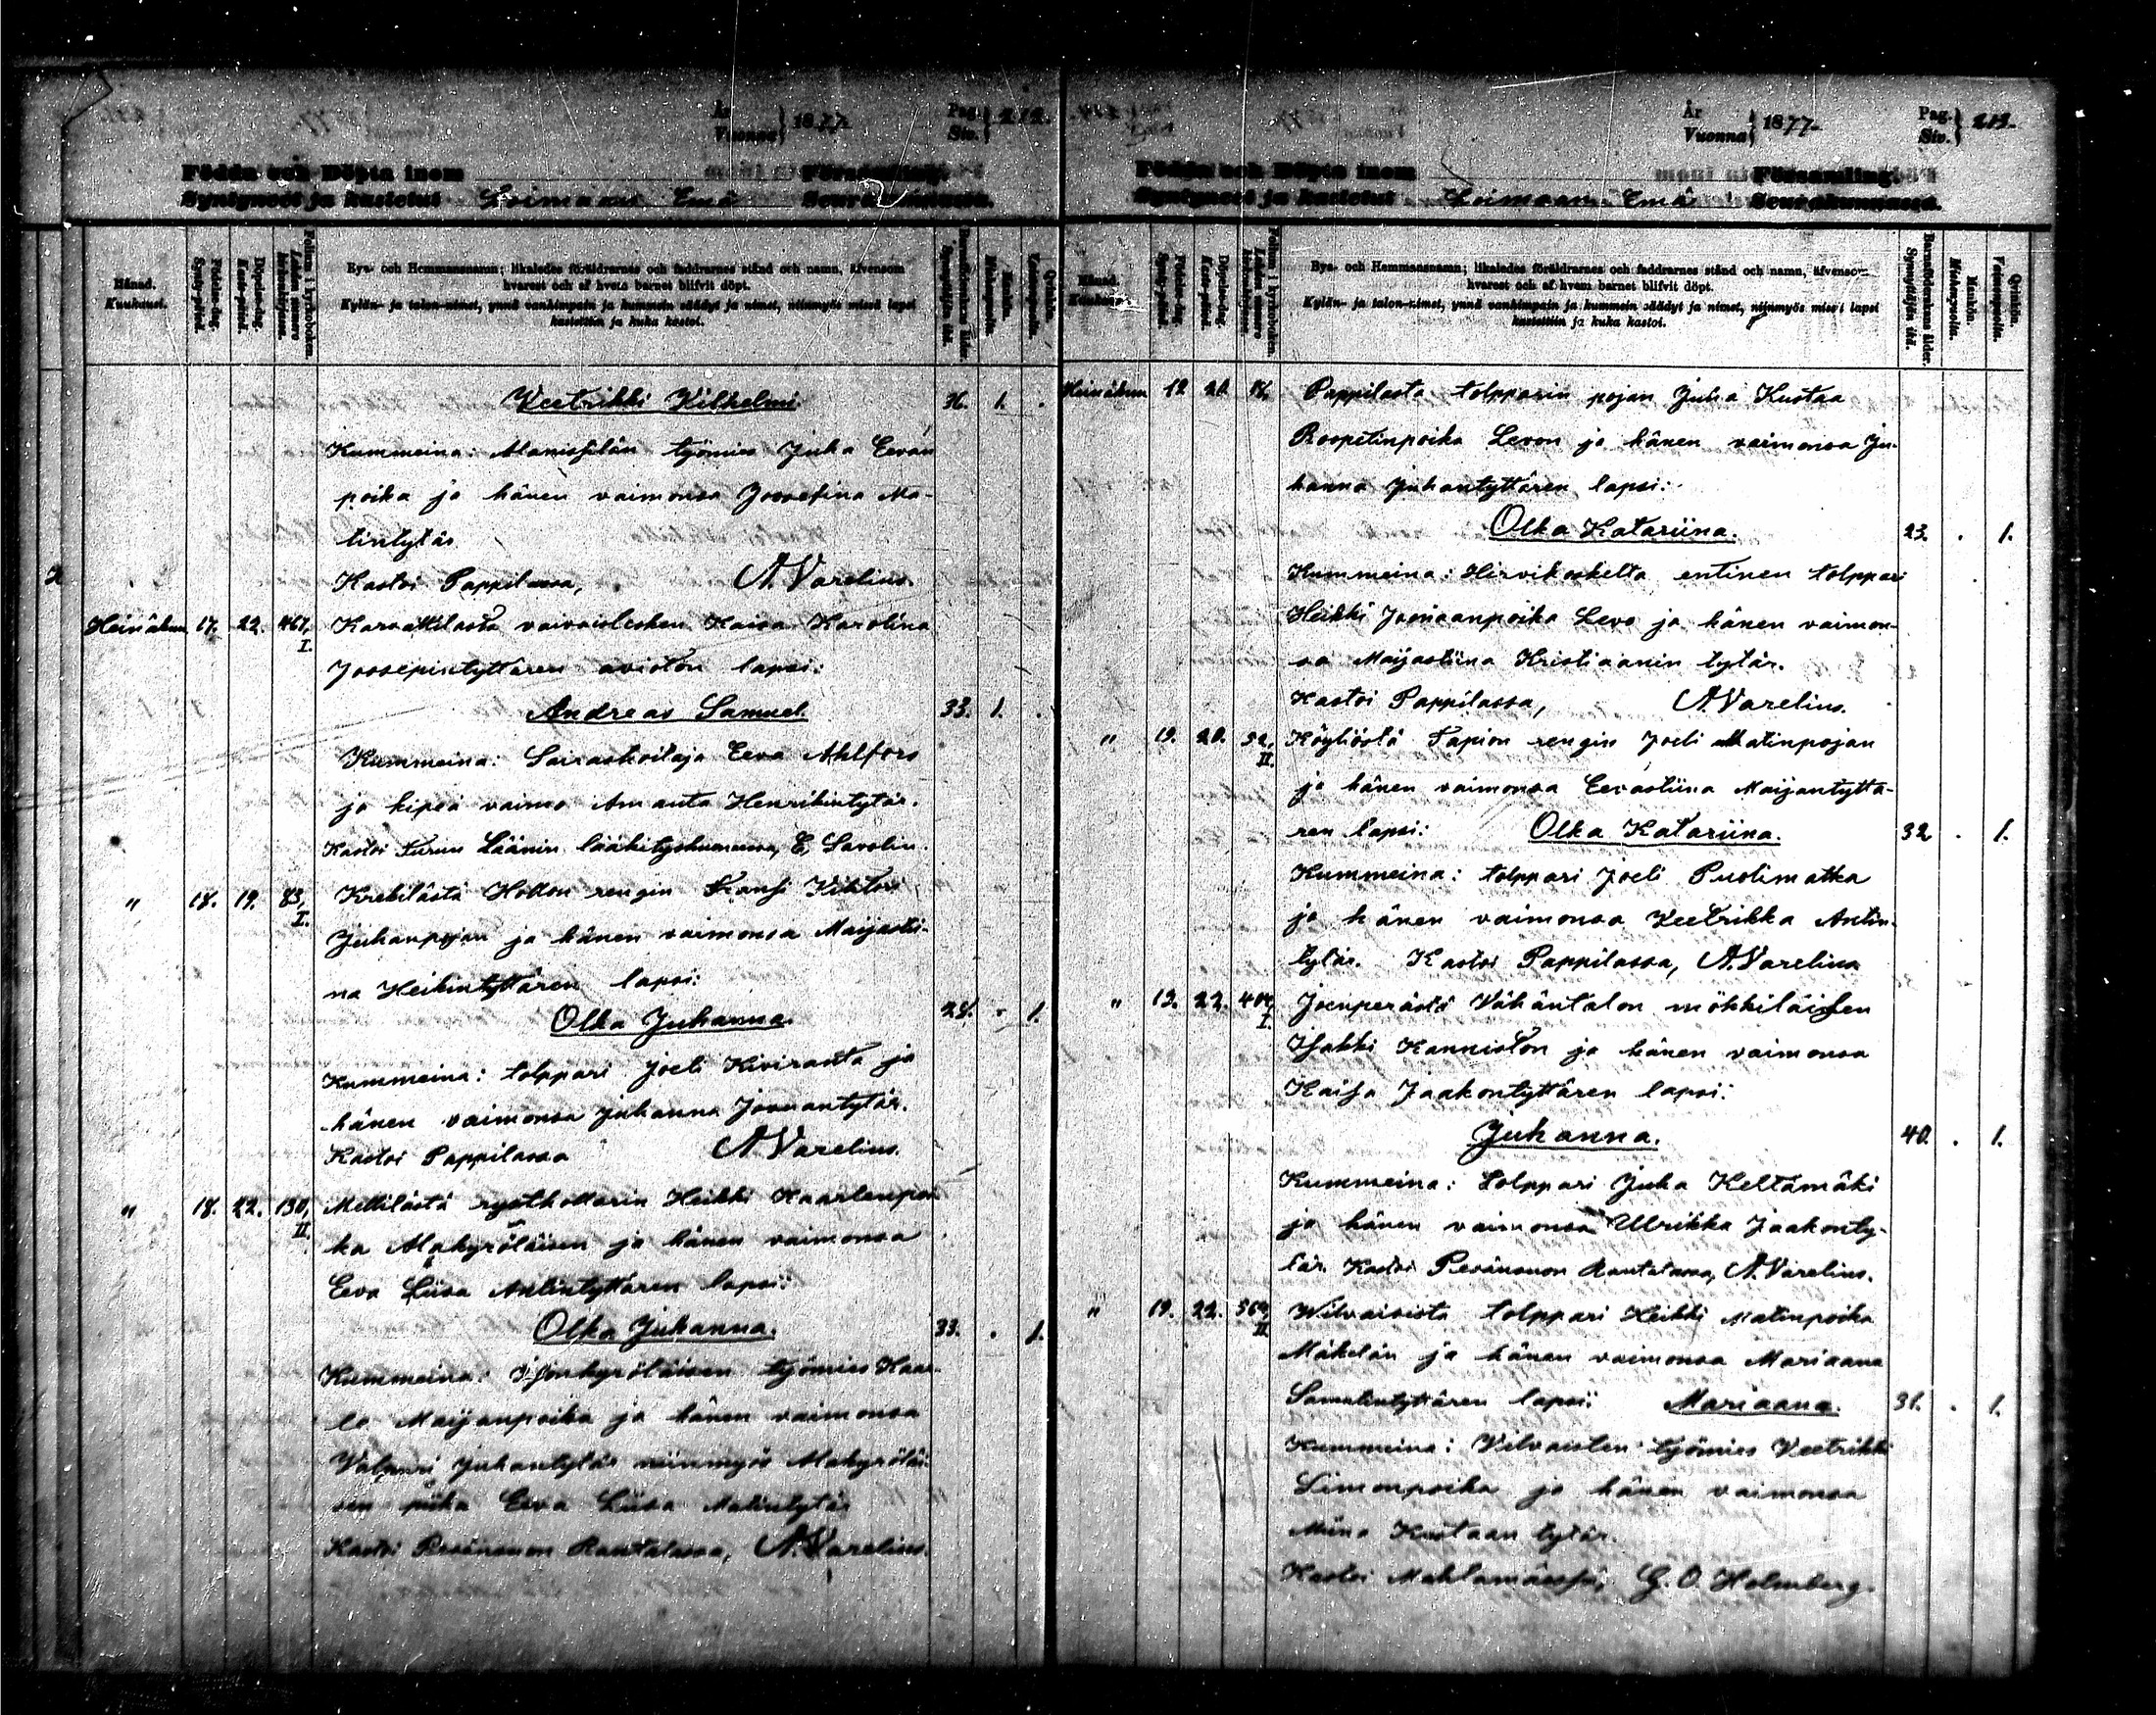 År
Vuonna 1877.
Pag.
Siv. 212.
Födda och Döpta inom Församling.
Syntyneet ja kastetut Loimaan Emä Seurakunnassa.
Månad.
Kuukausi.
Födelse-dag.
Synty-päivä.
Döpelse-dag.
Kaste-päivä.
Folium i kyrkoboken.
Lehden numero kirkonkirjassa.
Bys- och Hemmansnamn; likaledes föräldrarnes och faddrarnes stånd och namn, äfvensom
hvarest och af hvem barnet blifvit döpt.
Kylän- ja talon-nimet, ynnä vanhimpain ja kummein säädyt ja nimet, niinmyös missä lapsi
kastettiin ja kuka kastoi.
Barnaföderskans ålder.
Synnyttäjän ikä.
Mankön.
Miehenpuolia.
Qvinkön.
Vaimonpuolia.
Veetrikki Vilhelmi 36. 1. .
Kummeina: Alamissilän työmies Juha Eevan
poika ja hänen vaimonsa Joosefina Ma-
tintytär
Kastoi Pappilassa, A. Varelius.
Heinäkuu 17. 22. 467, I. Karsattilasta vaivaislesken Kaisa Karolina
Joosepintyttären avioton lapsi:
Andreas Samuel 33. 1. .
Kummeina: Sairashoitaja Eeva Ahlfors
ja kipeä vaimo Amanta Henrikintytär.
Kastoi Turun Läänin lääkityshuoneessa, E. Savolin.
" 18. 19. 83, I. Krekilästä Hollon rengin Franssi Vihtori
Juhanpojan ja hänen vaimonsa Maijasti-
na Heikintyttären lapsi:
Olka Juhanna. 28. . 1.
Kummeina: tolppari Joeli Kiviranta ja
hänen vaimonsa Juhanna Joonantytär.
Kastoi Pappilassa A. Varelius.
" 18. 22. 130, II. Mellilästä rystkollarin Heikki Kaarlenpoi
ka Alakyröläisen ja hänen vaimonsa
Eeva Liisa Antintyttären lapsi:
Olka Juhanna. 33. . 1.
Kummeina: Isonkyröläisen työmies Kaar-
lo Maijanpoika ja hänen vaimonsa
Valpuri Juhantytär niinmyös Alakyröläi-
sen piika Eeva Liisa Matintytär
Kastoi Peränsuon Rantalassa, A. Varelius.
År
Vuonna 1877.
Pag.
Siv. 213.
Födda och Döpta inom Församling.
Syntyneet ja kastetut Loimaan Emä Seurakunnassa.
Månad.
Kuukausi.
Födelse-dag.
Synty-päivä.
Döpelse-dag.
Kaste-päivä.
Folium i kyrkoboken.
Lehden numero kirkonkirjassa.
Bys- och Hemmansnamn; likaledes föräldrarnes och faddrarnes stånd och namn, äfvensom
hvarest och af hvem barnet blifvit döpt.
Kylän- ja talon-nimet, ynnä vanhimpain ja kummein säädyt ja nimet, niinmyös missä lapsi
kastettiin ja kuka kastoi.
Barnaföderskans ålder.
Synnyttäjän ikä.
Mankön.
Miehenpuolia.
Qvinkön.
Vaimonpuolia.
Heinäkuu 19 20. 16. Pappilasta tolpparin pojan Juha Kustaa
Roopetinpoika Levon ja hänen vaimonsa Ju-
hanna Juhantyttären lapsi:
Olka Katariina. 23. . 1.
Kummeina: Hirvikoskelta entinen tolppari
Heikki Joonaanpoika Levo ja hänen vaimon-
sa Maijastiina Kristiaanin tytär.
Kastoi Pappilassa, A. Varelius.
" 19. 20. 52, II. Köyliöstä Tapion rengin Joeli Matinpojan
ja hänen vaimonsa Eevastiina Maijantyttä-
ren lapsi: Olka Katariina. 32 . 1.
Kummeina: tolppari Joeli Puolimatka
ja hänen vaimonsa Veetrikka Antin-
tytär. Kastoi Pappilassa, A. Varelius
" 19. 22. 404, I. Joenperästä Vähäntalon mökkiläisen
Isakki Kanniston ja hänen vaimonsa
Kaisa Jaakontyttären lapsi:
Juhanna. 40. . 1.
Kummeina: tolppari Juha Keltamäki
ja hänen vaimonsa Ulrikka Jaakonty-
tär. Kastoi Peränsuon Rantalassa, A. Varelius.
" 19. 22. 564, II. Wilvaisista tolppari Heikki Matinpoika
Mäkelän ja hänen vaimonsa Mariaana
Samulintyttären lapsi: Mariaana. 31. . 1.
Kummeina: Vilvaisten työmies Veetrikki
Simonpoika ja hänen vaimonsa
Miina Kustaan tytär.
Kastoi Mahlamäessä, G. O. Holmberg.